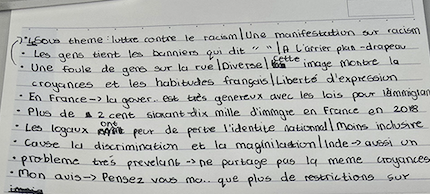 Sous theme: luttre contre le racism | Une manifestation sur racism
• Les gens tient les banniers qui dit " " | A l'arrier plan - drapeau
• Une foule de gens sur la rue | Diverse | cette image montre la
croyances et les habitudes français | Liberté d'expression
• En France -> la gouver. est très genereux avec les lois pour l'immigran
• Plus de 2 cent sioxant-dix mille d'immgre en France en 2018
• Les logaux ont peur de pertre l'identite national | Moins inclusive
• Cause la discrimination et la maginilastion | Inde -> aussi un
• probleme très prevelant -> ne partage pas la meme croyances
• Mon avis -> Pensez vous ma.. que plus de restrictions sur